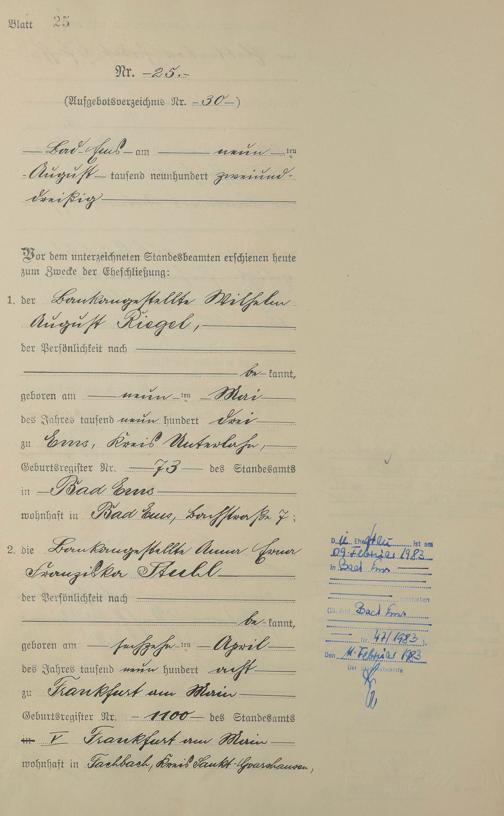 Blatt 25
Nr. -25.-
(Aufgebotsverzeichnis Nr. -30-)
Bad-Ems am neun ten
August tausend neunhundert zweiund-
dreißig
Vor dem unterzeichneten Standesbeamten erschienen heute
zum Zwecke der Eheschließung:
1. der Bankangestellte Wilhelm
August Riegel,
der Persönlichkeit nach
be kannt,
geboren am neun ten Mai
des Jahres tausend neun hundert drei
zu Ems, Kreis Unterlahn,
Geburtsregister Nr. 73 des Standesamts
in Bad Ems
wohnhaft in Bad Ems, Bachstraße 7;
2. die Bankangestellte Anna Erna
Franziska
der Persönlichkeit nach
be kannt,
geboren am ten April
des Jahres tausend neun hundert acht
zu Frankfurt am Main
Geburtsregister Nr. 1100 des Standesamts
in V Frankfurt am Main
wohnhaft in Fachbach, Kreis Sankt-Goarshausen,
D. Ehe ist am
09. Februar 1983
in Bad Ems
Bad Ems
Nr. 47/1983).
Den 11. Februar 1983